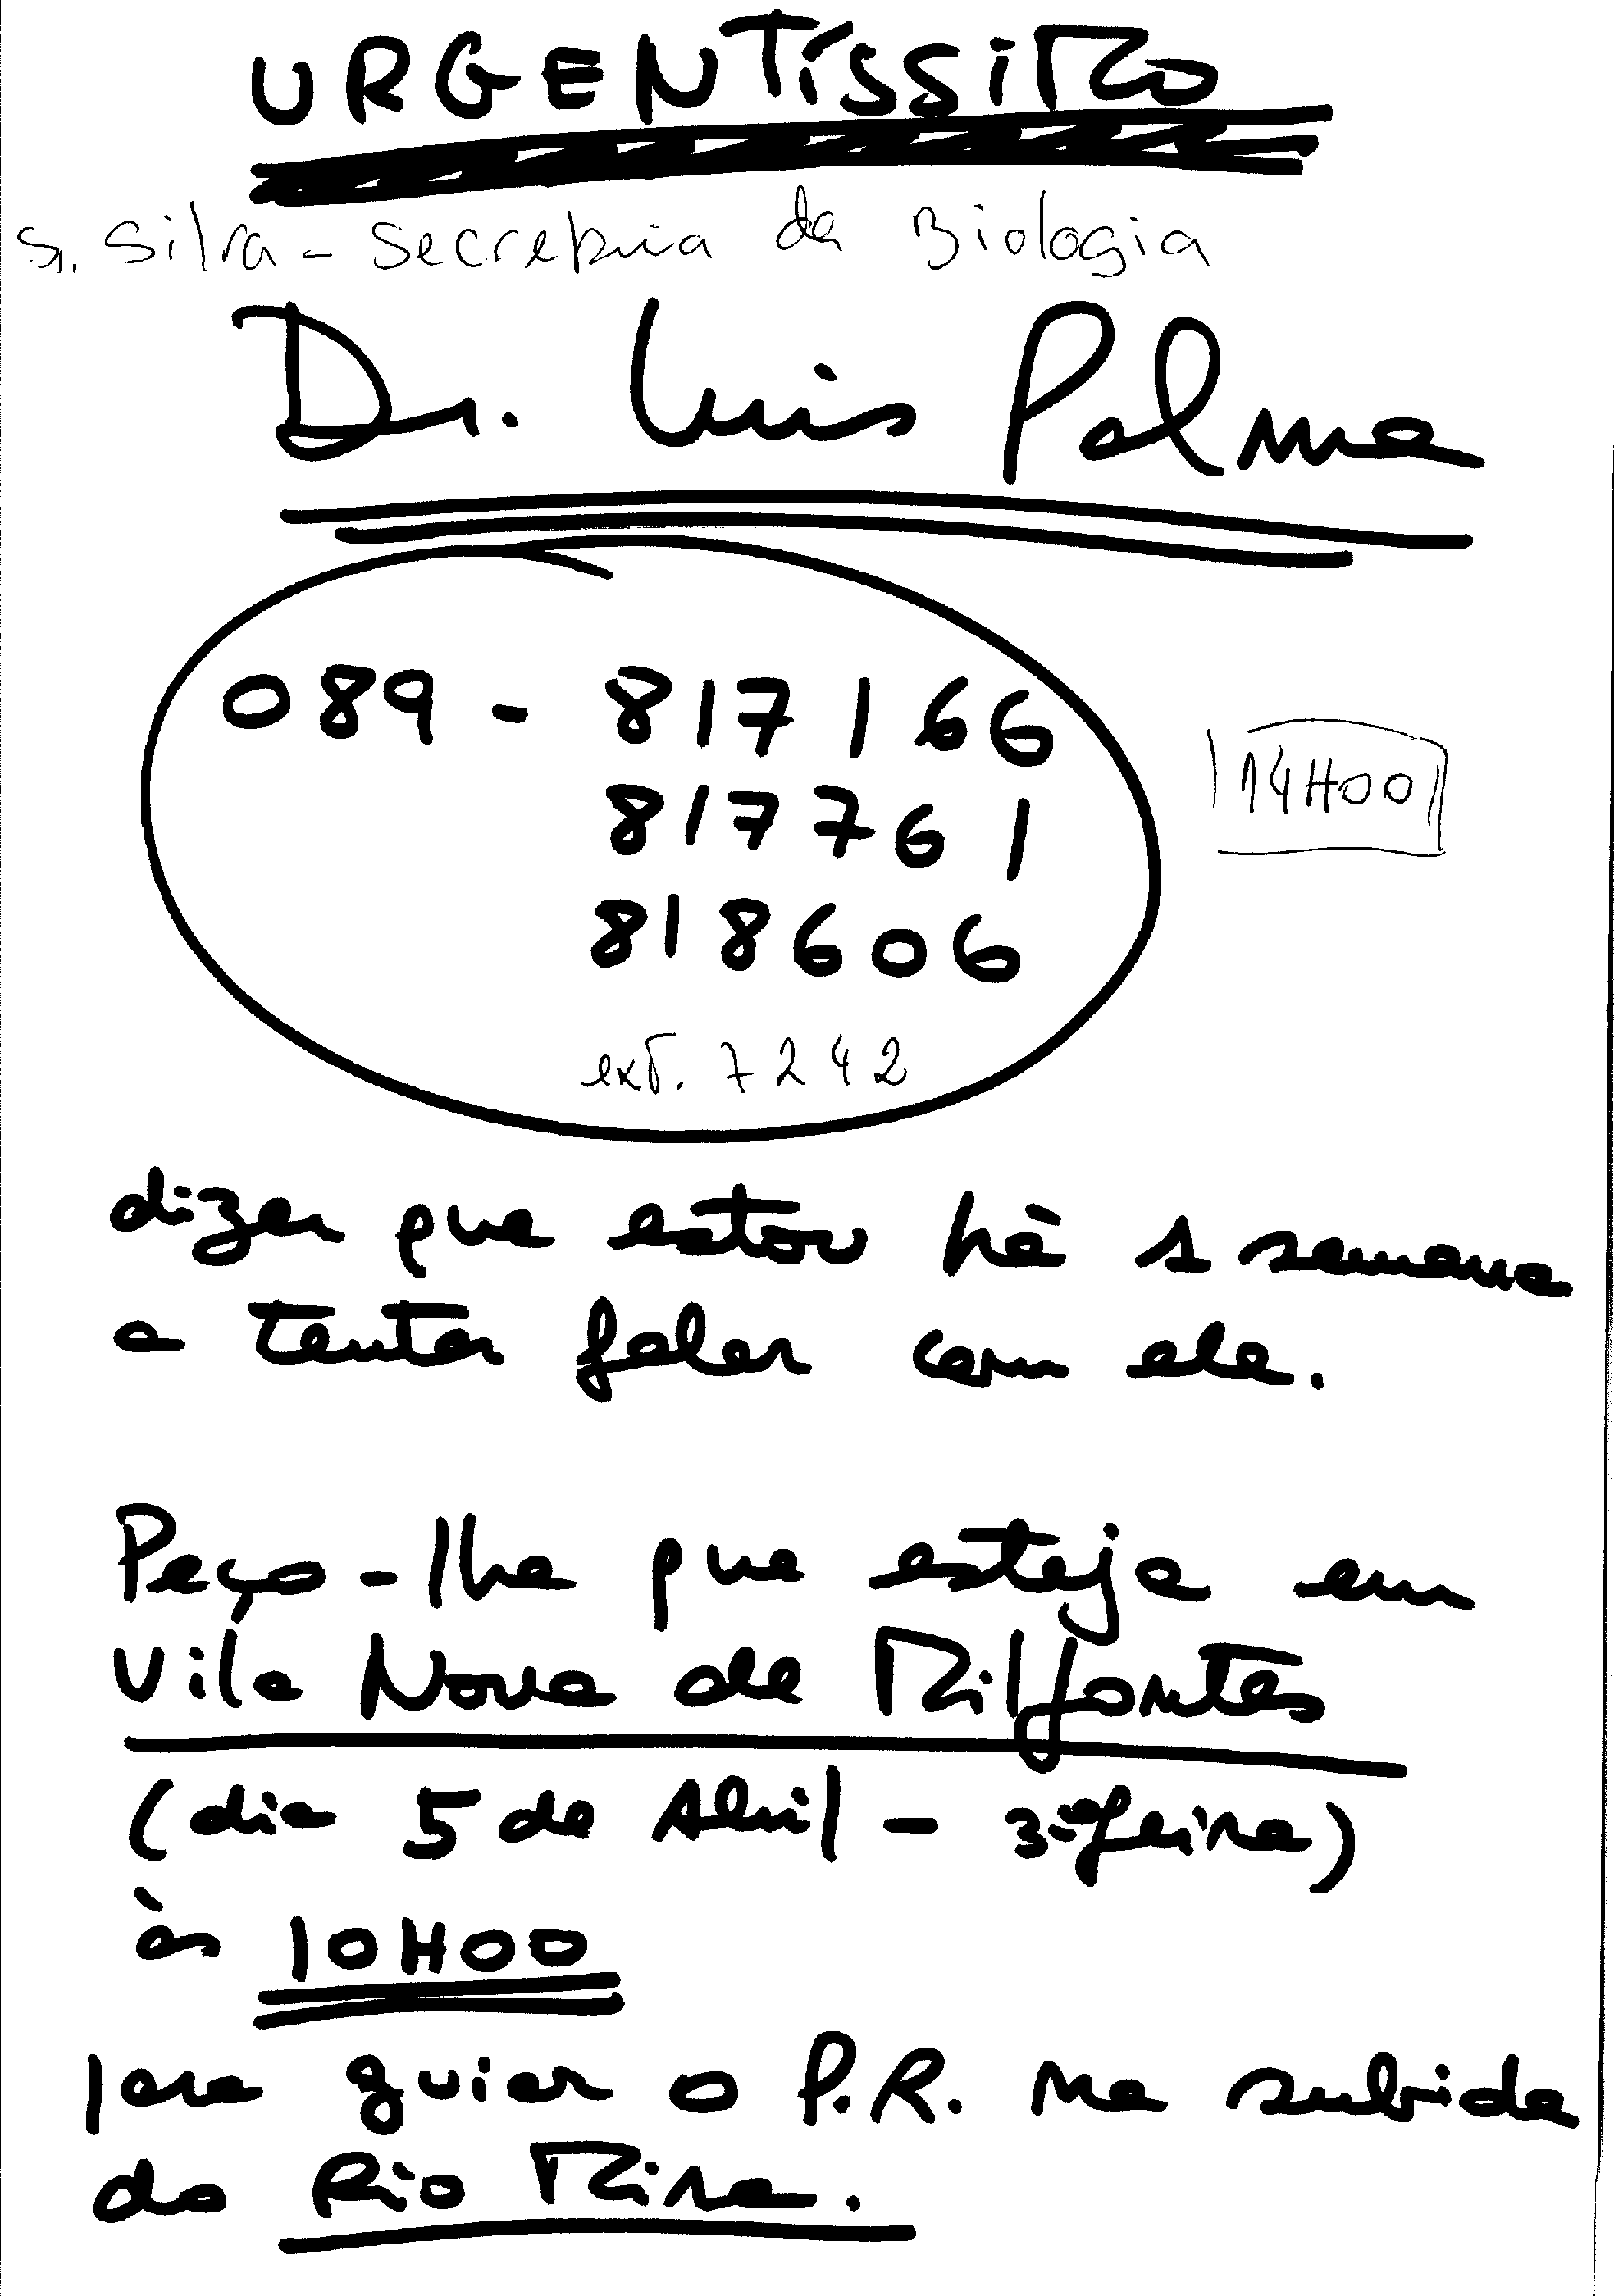 URGENTÍSSIMO
Sr. Silva - Secretaria da Biologia
Dr. Luis Palma
089 - 817166
817761
14H00
818606
ext. 7242
dizer que estou há 1 semana
a tentar falar com ele.
Peço-lhe que esteja em
Vila Nova de Milfontes
(dia 5 de Abril - 3ª feira)
às 10H00
para guiar o P.R. na subida
do Rio Mira.